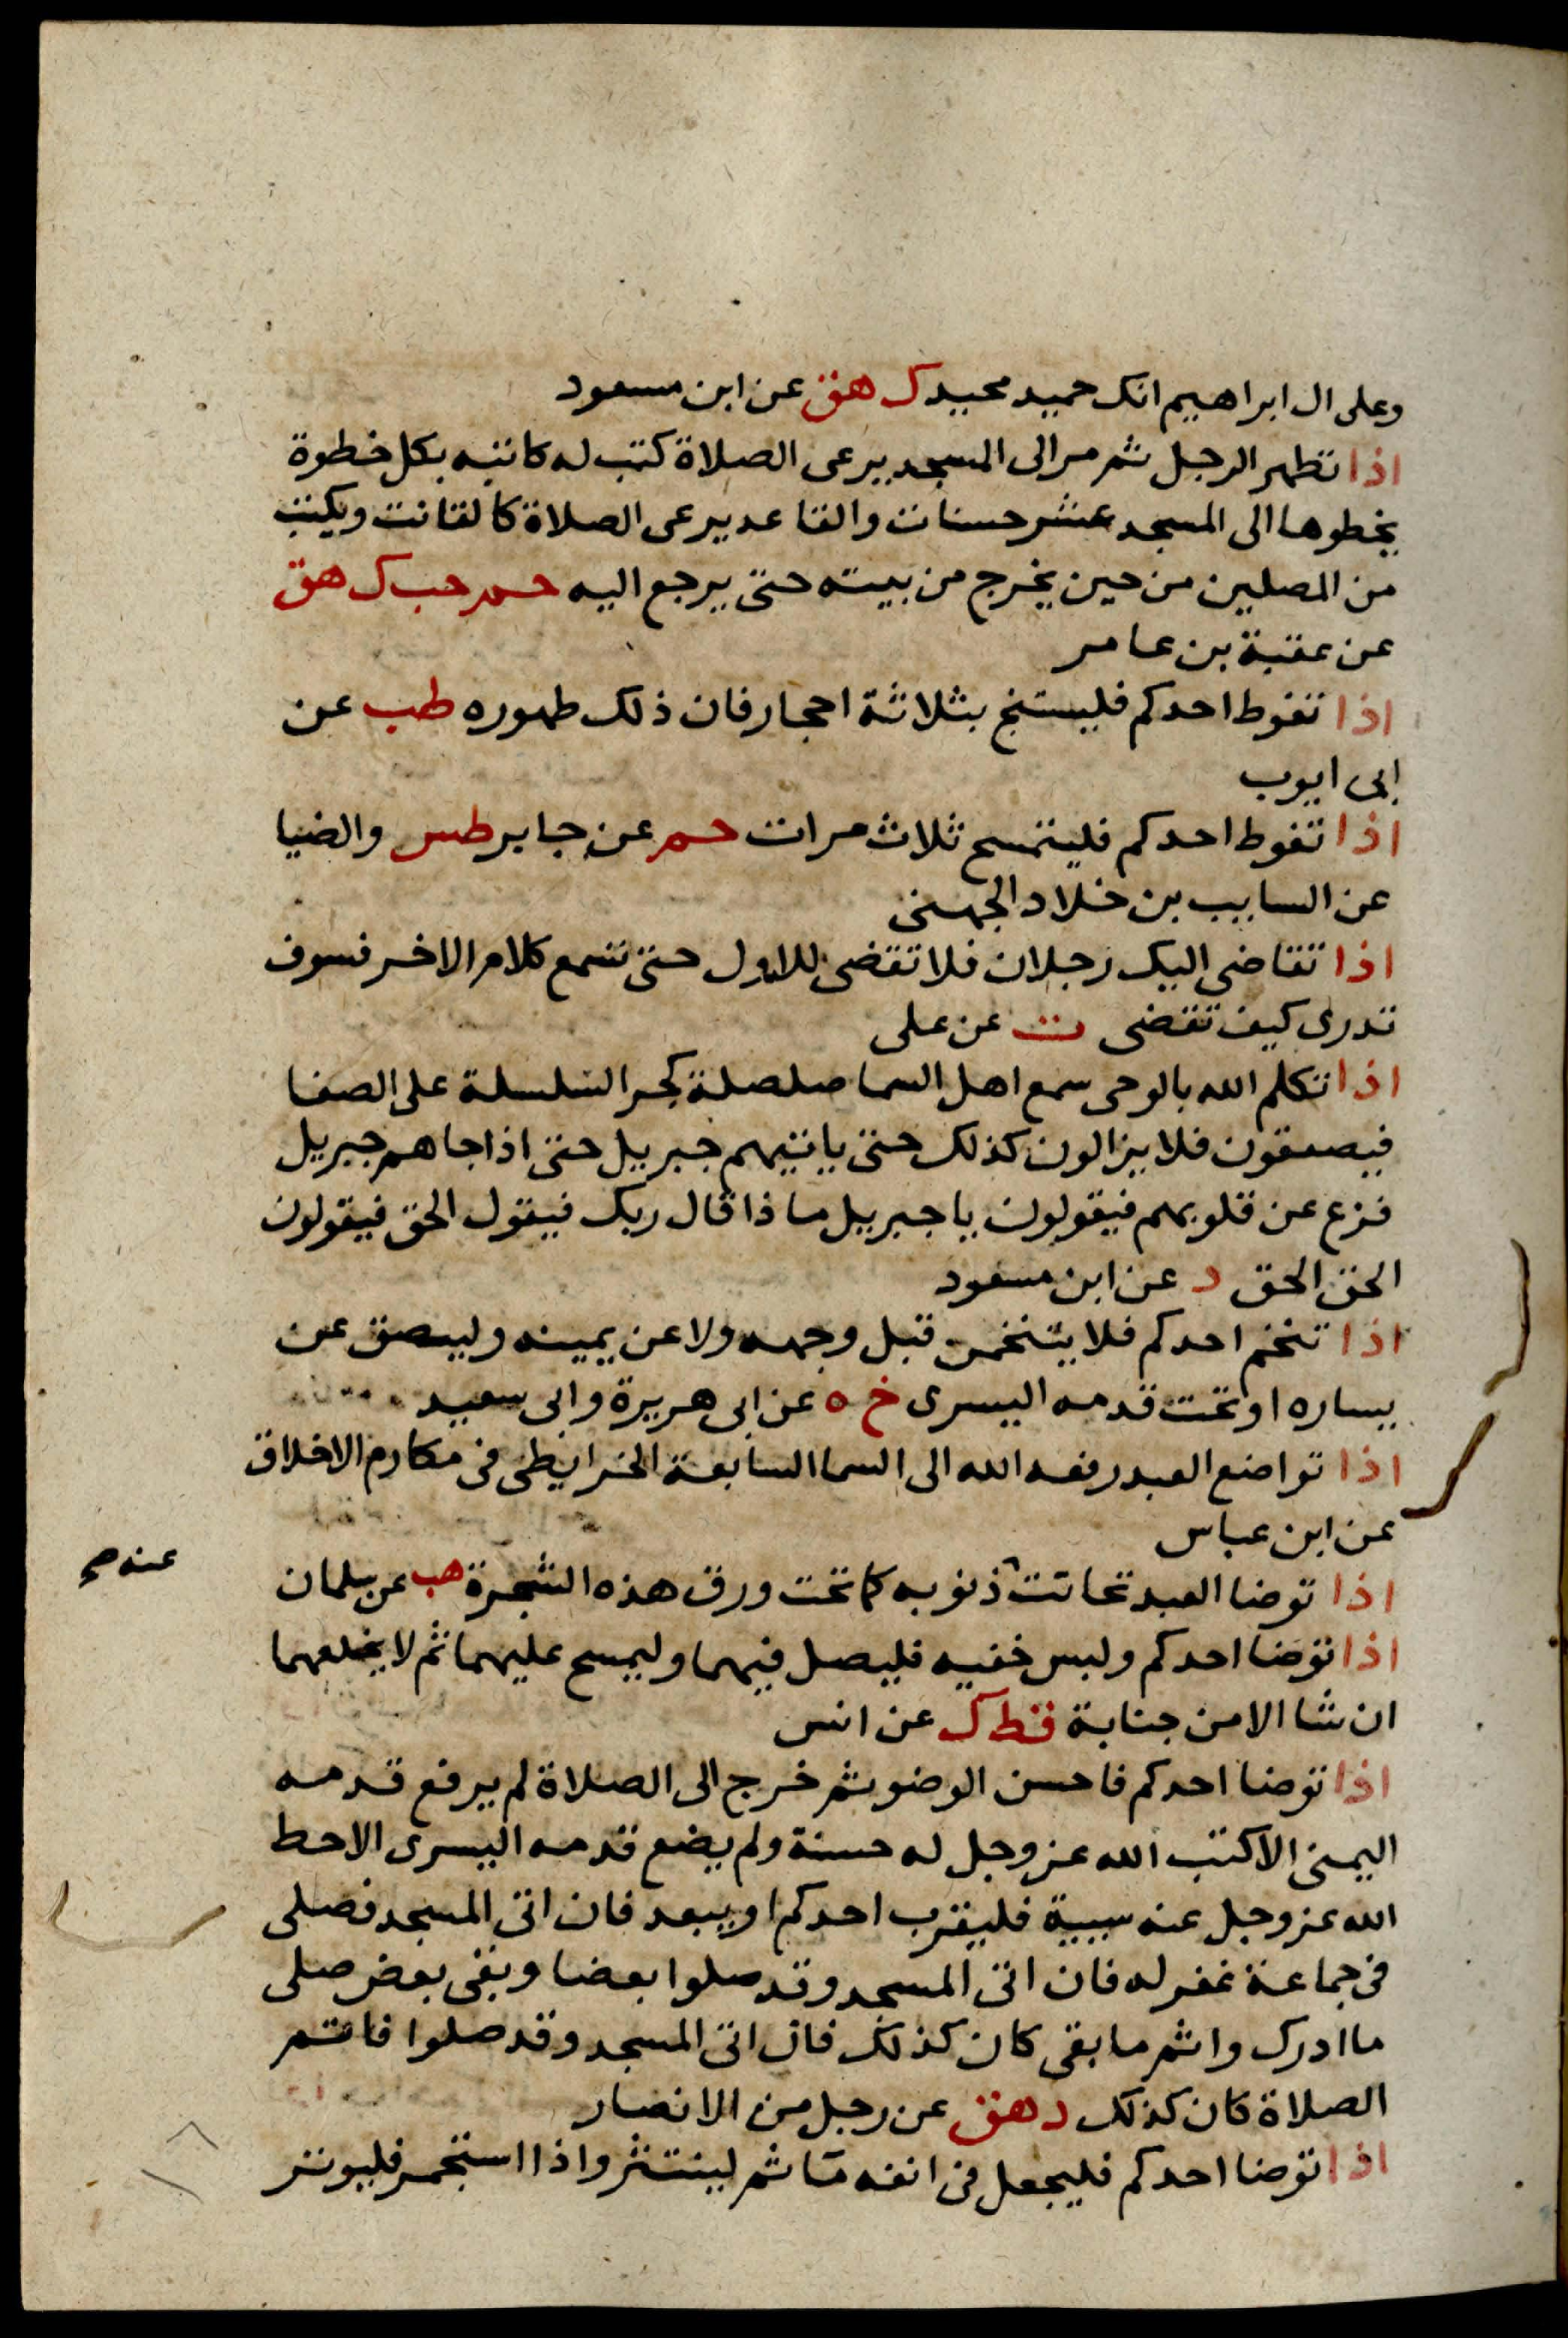 وعلى ال ابراهيم انك حميد مجيد ك هق عن ابن مسعود
اذا تطهر الرجل ثم مر الى المسجد يرعى الصلاة كتب له كاتبه بكل خطوة
يخطوها الى المسجد عشر حسنات والقاعد يرعى الصلاة كالقانت ويكتب
من المصلين من حين يخرج من بيته حتى يرجع اليه حم حب ك هق
عن عقبة بن عامر
اذا تغوط احدكم فليستنج بثلاثة احجار فان ذلك طهوره طب عن
ابى ايوب
اذا تغوط احدكم فليتمسح ثلاث مرات حم عن جابر طس والضيا
عن السايب بن خلاد الجهنى
اذا تقاضى اليك رجلان فلا تقضى للاول حتى تسمع كلام الاخر فسوف
تدرى كيف تقضى ت عن على
اذا تكلم الله بالوحى سمع اهل السما صلصلة كجر السلسلة على الصفا
فيصعقون فلا يزالون كذلك حتى ياتيهم جبريل حتى اذا جاهم جبريل
فزع عن قلوبهم فيقولون يا جبريل ماذا قال ربك فيقول الحق فيقولون
الحق الحق د عن ابن مسعود
اذا تنخم احدكم فلا يتنخمن قبل وجهه ولا عن يمينه وليبصق عن
يساره او تحت قدمه اليسرى خ ه عن ابى هريرة وابى سعيد
اذا تواضع العبد رفعه الله الى السما السابعة الخرايطى فى مكارم الاخلاق
عن ابن عباس
اذا توضا العبد تحاتت ذنوبه كما تحت ورق هذه الشجرة هب عن سلمان
عنه صح
اذا توضا احدكم ولبس خفيه فليصل فيهما وليمسح عليهما ثم لا يخلعهما
ان شا الا من جنابة قط ك عن انس
اذا توضا احدكم فاحسن الوضو ثم خرج الى الصلاة لم يرفع قدمه
اليمنى الا كتب الله عز وجل له حسنة ولم يضع قدمه اليسرى الا حط
الله عز وجل عنه سيية فليقرب احدكم او يبعد فان اتى المسجد فصلى
فى جماعة غفر له فان اتى المسجد وقد صلوا بعضا وبقى بعض صلى
ما ادرك واتم ما بقى كان كذلك فان اتى المسجد وقد صلوا فاتم
الصلاة كان كذلك د هق عن رجل من الانصار
اذا توضا احدكم فليجعل فى انفه مآ ثم لينتثر واذا استجمر فليوتر